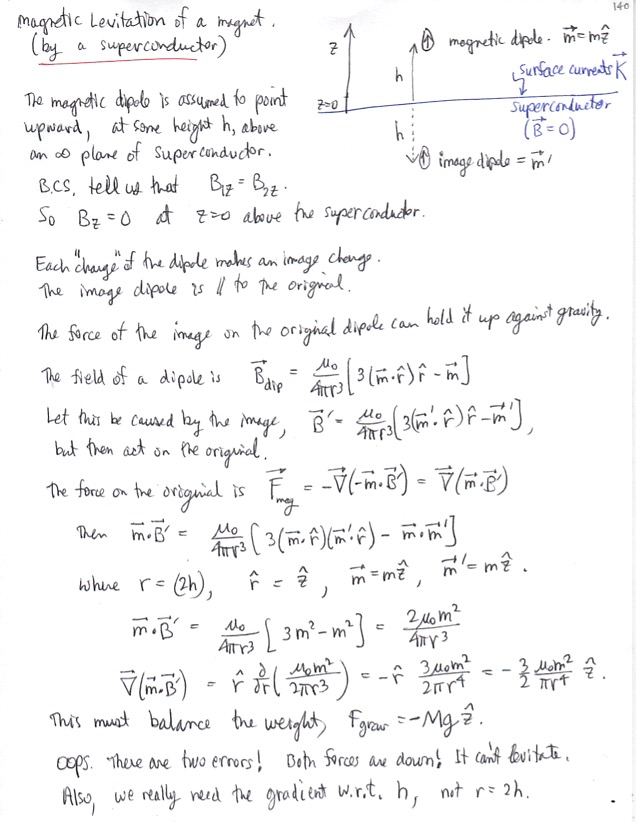 140
Magnetic Levitation of a magnet.
(by a superconductor)
z
h
magnetic dipole. m⃗ = mẑ
surface currents K⃗
z=0
superconductor
(B⃗ = 0)
h
image dipole = m⃗ ′
The magnetic dipole is assumed to point
upward, at some height h, above
an ∞ plane of superconductor.
B.C.S. tell us that B₁z = B₂z.
So Bz = 0 at z=0 above the superconductor.
Each "charge" of the dipole makes an image charge.
The image dipole is ∥ to the original.
The force of the image on the original dipole can hold it up against gravity.
The field of a dipole is B⃗dip = μ₀/4πr³ [3(m⃗·r̂)r̂ − m⃗]
Let this be caused by the image, B⃗′ = μ₀/4πr³ [3(m⃗′·r̂)r̂ − m⃗′],
but then act on the original.
The force on the original is F⃗mag = −∇⃗(−m⃗·B⃗′) = ∇⃗(m⃗·B⃗′)
Then m⃗·B⃗′ = μ₀/4πr³ [3(m⃗·r̂)(m⃗′·r̂) − m⃗·m⃗′]
where r = (2h), r̂ = ẑ, m⃗ = mẑ, m⃗′ = mẑ.
m⃗·B⃗′ = μ₀/4πr³ [3m² − m²] = 2μ₀m²/4πr³
∇⃗(m⃗·B⃗′) = r̂ ∂/∂r (μ₀m²/2πr³) = −r̂ 3μ₀m²/2πr⁴ = −3/2 μ₀m²/πr⁴ ẑ.
This must balance the weight, Fgrav = −Mgẑ.
OOPS. There are two errors! Both forces are down! It can't levitate.
Also, we really need the gradient w.r.t. h, not r = 2h.